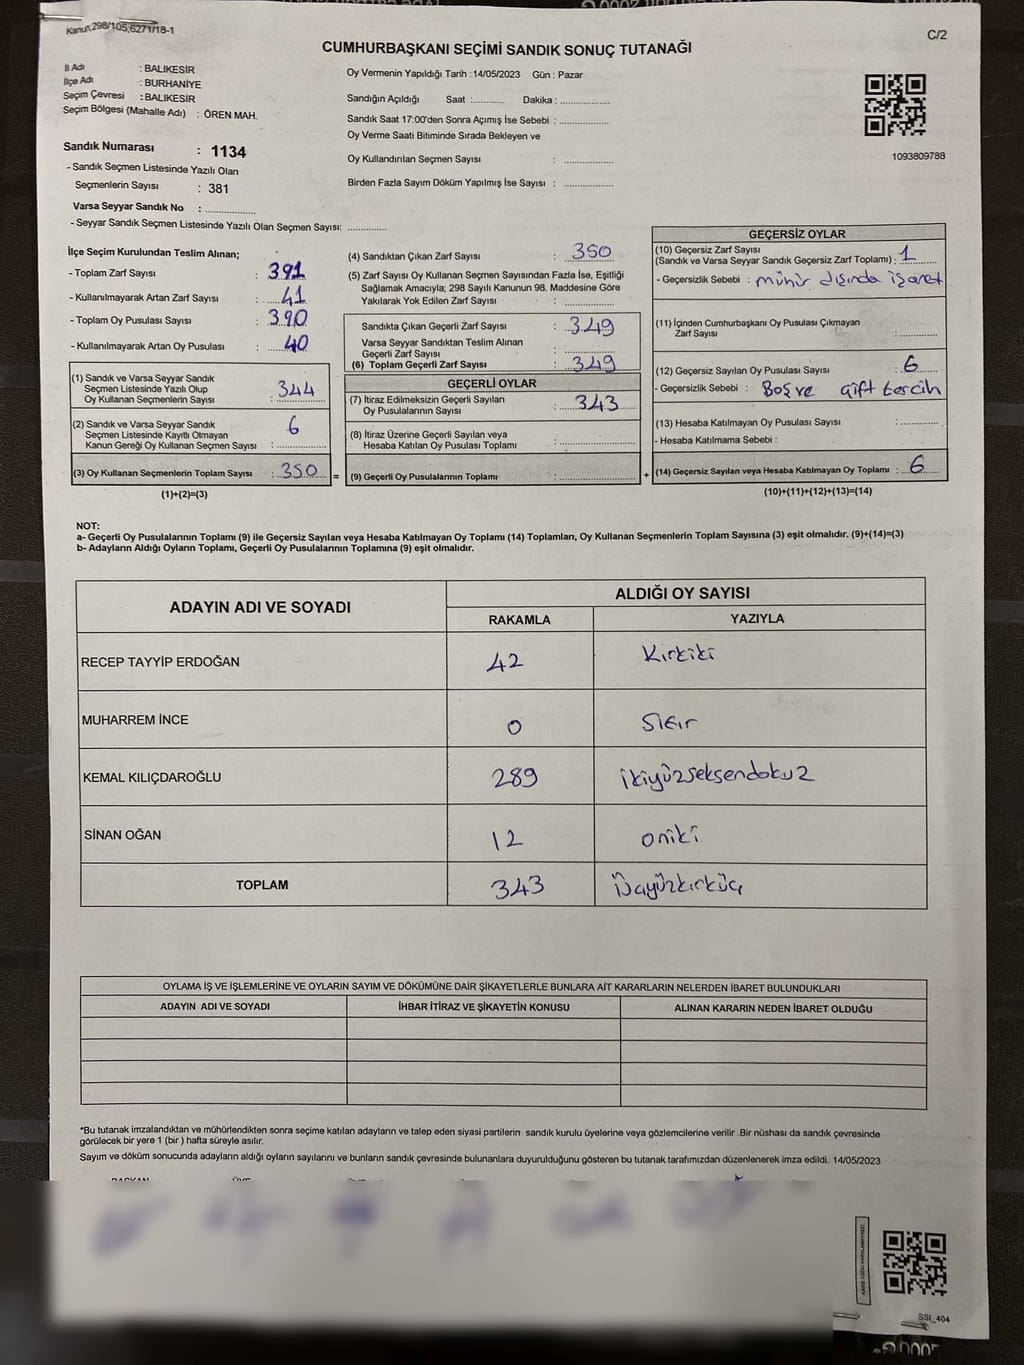 Kanun 298/105,6271/18-1
C/2
CUMHURBAŞKANI SEÇİMİ SANDIK SONUÇ TUTANAĞI
İl Adı : BALIKESİR
İlçe Adı : BURHANİYE
Seçim Çevresi : BALIKESİR
Seçim Bölgesi (Mahalle Adı) : ÖREN MAH.
Oy Vermenin Yapıldığı Tarih : 14/05/2023 Gün : Pazar
Sandığın Açıldığı Saat :........... Dakika : ................
Sandık Saat 17:00'den Sonra Açımış İse Sebebi : ................
Oy Verme Saati Bitiminde Sırada Bekleyen ve
Oy Kullandırılan Seçmen Sayısı : ................
Birden Fazla Sayım Döküm Yapılmış İse Sayısı : ................
1093809788
Sandık Numarası : 1134
- Sandık Seçmen Listesinde Yazılı Olan
Seçmenlerin Sayısı : 381
Varsa Seyyar Sandık No : ................
- Seyyar Sandık Seçmen Listesinde Yazılı Olan Seçmen Sayısı: ............
İlçe Seçim Kurulundan Teslim Alınan;
- Toplam Zarf Sayısı : 391
- Kullanılmayarak Artan Zarf Sayısı : 41
- Toplam Oy Pusulası Sayısı : 390
- Kullanılmayarak Artan Oy Pusulası : 40
(1) Sandık ve Varsa Seyyar Sandık
Seçmen Listesinde Yazılı Olup
Oy Kullanan Seçmenlerin Sayısı : 344
(2) Sandık ve Varsa Seyyar Sandık
Seçmen Listesinde Kayıtlı Olmayan
Kanun Gereği Oy Kullanan Seçmen Sayısı : 6
(3) Oy Kullanan Seçmenlerin Toplam Sayısı : 350 =
(1)+(2)=(3)
(4) Sandıktan Çıkan Zarf Sayısı : 350
(5) Zarf Sayısı Oy Kullanan Seçmen Sayısından Fazla İse, Eşitliği
Sağlamak Amacıyla; 298 Sayılı Kanunun 98. Maddesine Göre
Yakılarak Yok Edilen Zarf Sayısı : ................
Sandıkta Çıkan Geçerli Zarf Sayısı : 349
Varsa Seyyar Sandıktan Teslim Alınan
Geçerli Zarf Sayısı : ................
(6) Toplam Geçerli Zarf Sayısı : 349
GEÇERLİ OYLAR
(7) İtiraz Edilmeksizin Geçerli Sayılan
Oy Pusulalarının Sayısı : 343
(8) İtiraz Üzerine Geçerli Sayılan veya
Hesaba Katılan Oy Pusulası Toplamı : ................
(9) Geçerli Oy Pusulalarının Toplamı : ................ +
GEÇERSİZ OYLAR
(10) Geçersiz Zarf Sayısı
(Sandık ve Varsa Seyyar Sandık Geçersiz Zarf Toplamı) : 1
- Geçersizlik Sebebi : mühür dışında işaret
(11) İçinden Cumhurbaşkanı Oy Pusulası Çıkmayan
Zarf Sayısı : ............
(12) Geçersiz Sayılan Oy Pusulası Sayısı : 6
- Geçersizlik Sebebi : Boş ve çift tercih
(13) Hesaba Katılmayan Oy Pusulası Sayısı : ............
- Hesaba Katılmama Sebebi :
(14) Geçersiz Sayılan veya Hesaba Katılmayan Oy Toplamı : 6
(10)+(11)+(12)+(13)=(14)
NOT:
a- Geçerli Oy Pusulalarının Toplamı (9) ile Geçersiz Sayılan veya Hesaba Katılmayan Oy Toplamı (14) Toplamları, Oy Kullanan Seçmenlerin Toplam Sayısına (3) eşit olmalıdır. (9)+(14)=(3)
b- Adayların Aldığı Oyların Toplamı, Geçerli Oy Pusulalarının Toplamına (9) eşit olmalıdır.
ADAYIN ADI VE SOYADI ALDIĞI OY SAYISI
RAKAMLA YAZIYLA
RECEP TAYYİP ERDOĞAN 42 Kırkiki
MUHARREM İNCE 0 Sıfır
KEMAL KILIÇDAROĞLU 289 ikiyüzseksendokuz
SİNAN OĞAN 12 oniki
TOPLAM 343 Üçyüzkırküç
OYLAMA İŞ VE İŞLEMLERİNE VE OYLARIN SAYIM VE DÖKÜMÜNE DAİR ŞİKAYETLERLE BUNLARA AİT KARARLARIN NELERDEN İBARET BULUNDUKLARI
ADAYIN ADI VE SOYADI İHBAR İTİRAZ VE ŞİKAYETİN KONUSU ALINAN KARARIN NEDEN İBARET OLDUĞU
*Bu tutanak imzalandıktan ve mühürlendikten sonra seçime katılan adayların ve talep eden siyasi partilerin sandık kurulu üyelerine veya gözlemcilerine verilir .Bir nüshası da sandık çevresinde
görülecek bir yere 1 (bir ) hafta süreyle asılır.
Sayım ve döküm sonucunda adayların aldığı oyların sayılarını ve bunların sandık çevresinde bulunanlara duyurulduğunu gösteren bu tutanak tarafımızdan düzenlenerek imza edildi. 14/05/2023
SSI_404